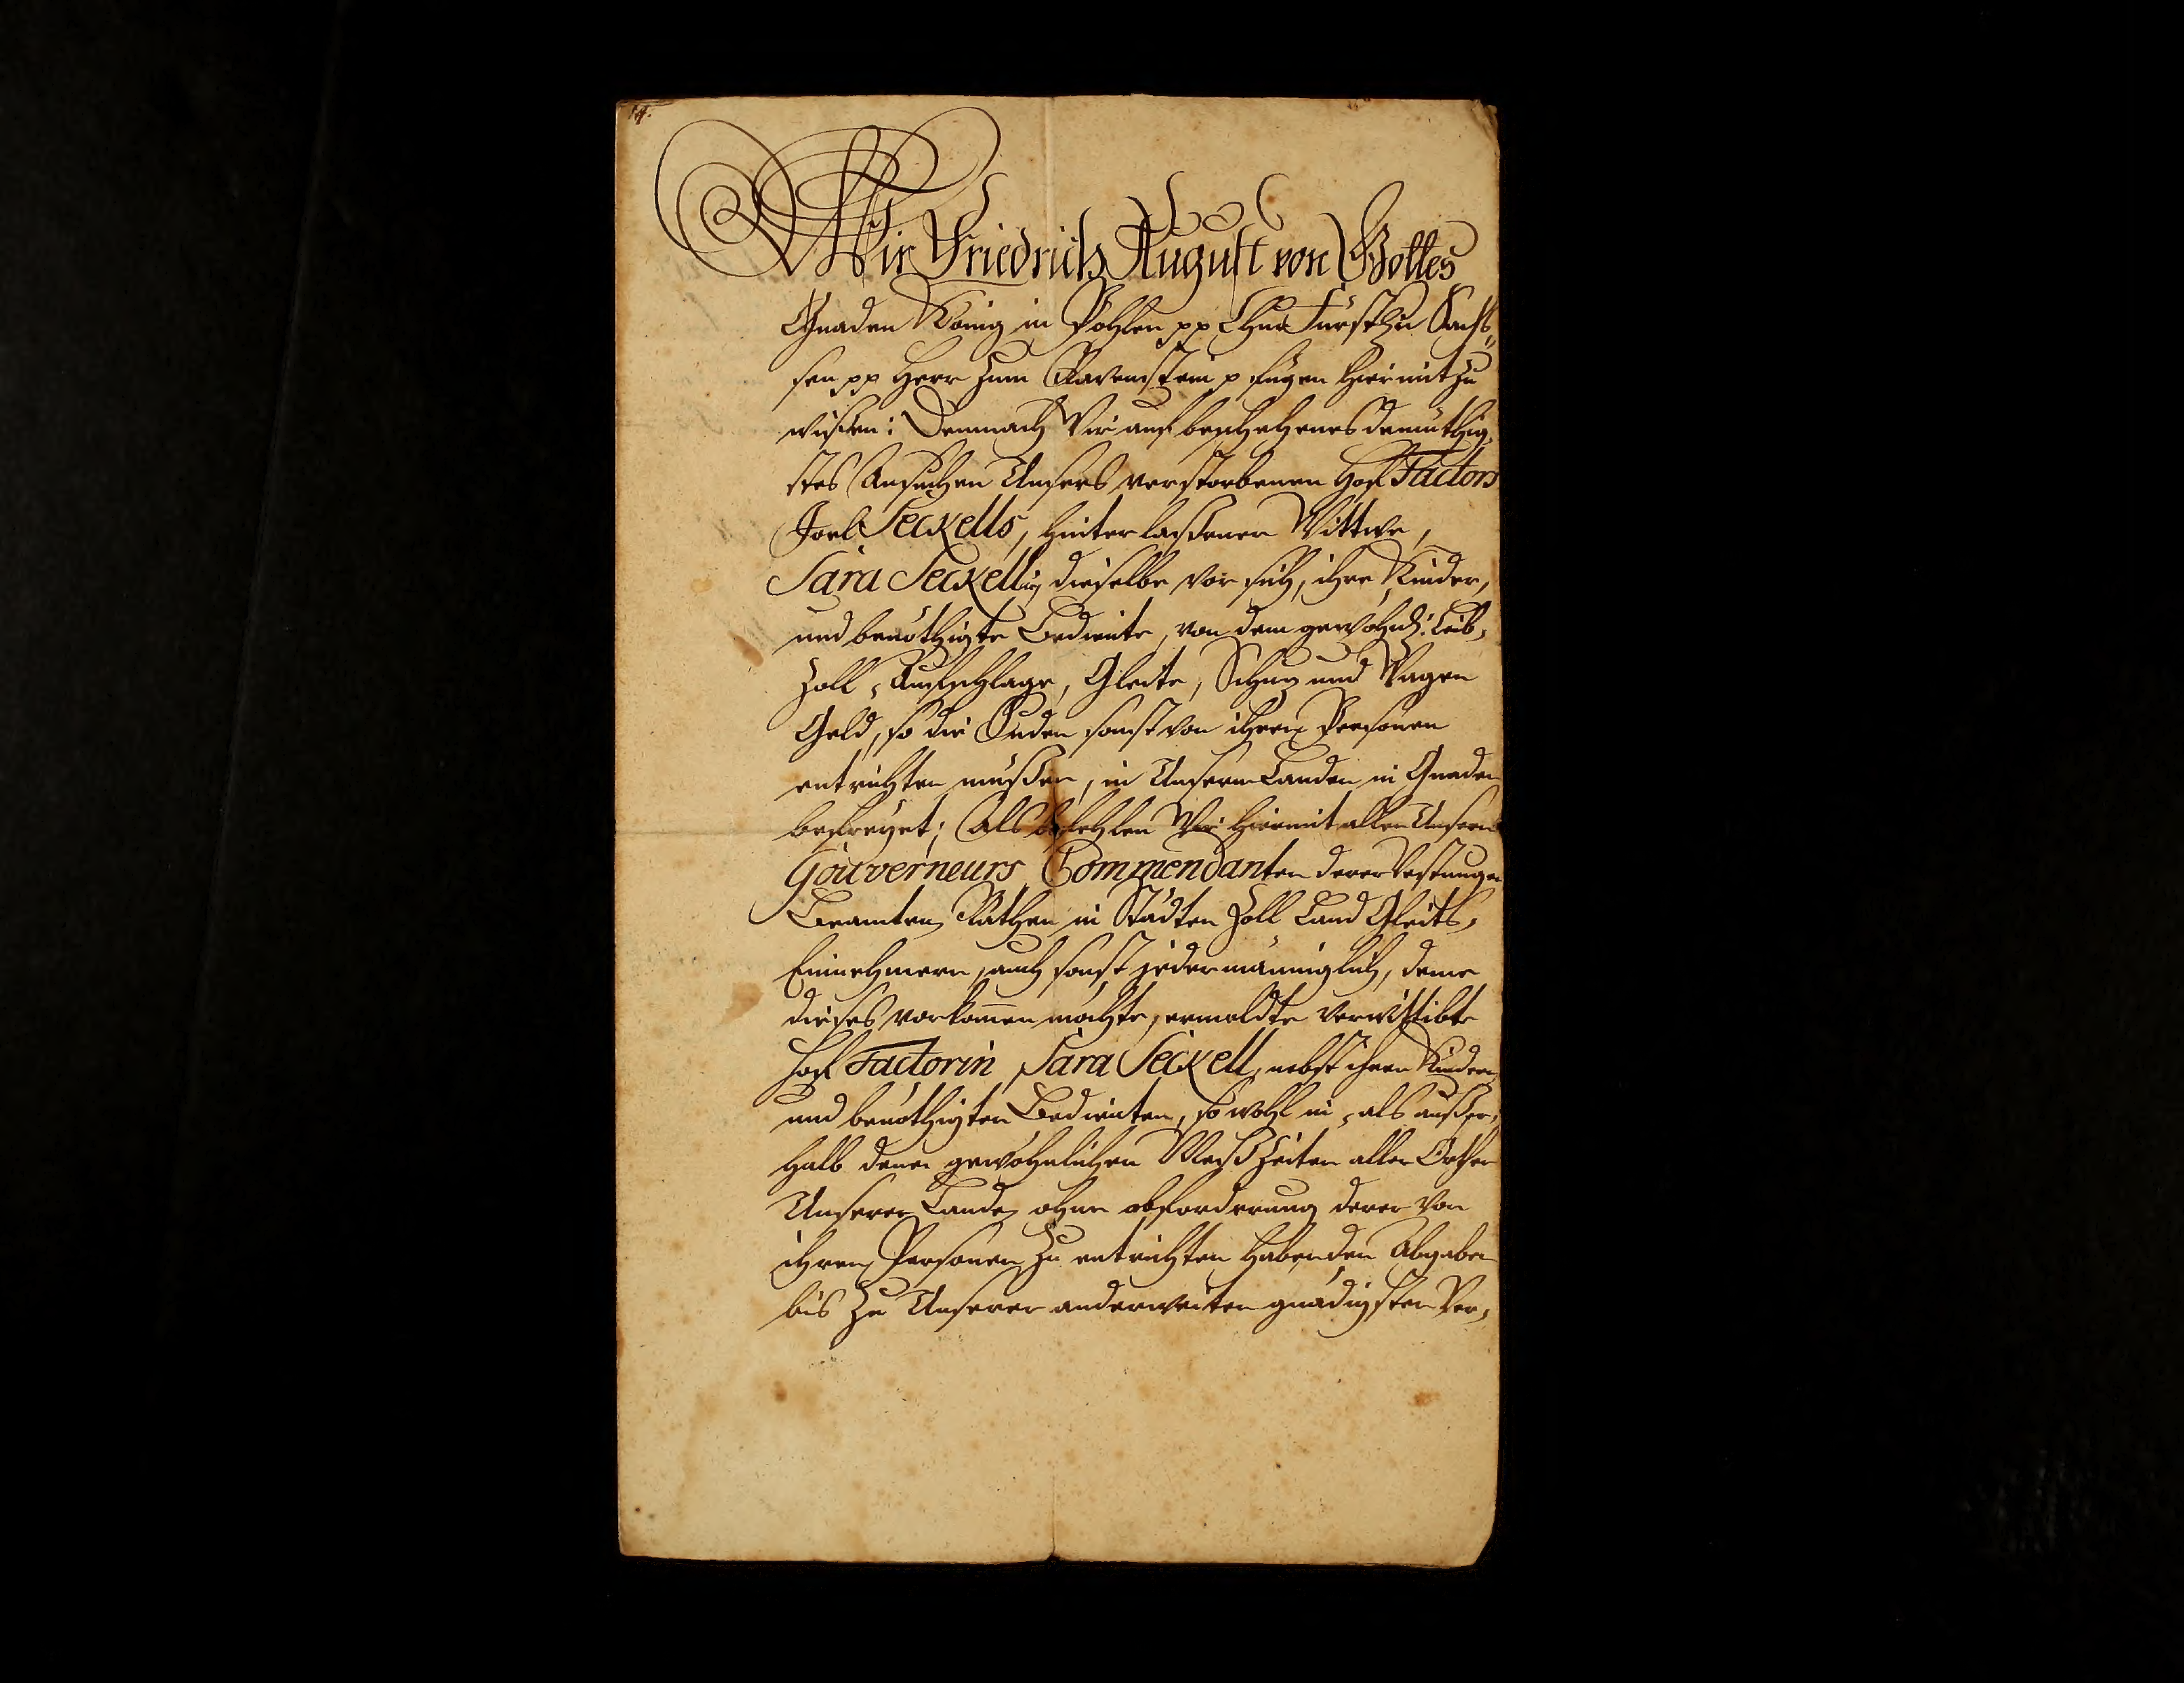 Wir Friedrich August von Gottes
Gnaden König in Pohlen pp ChurFürst zu Sachß„
sen pp Herr zum Ravenstein p fügen hiermit zu
wißen: Demnach Wir auf beschehenes demüthig„
stes Ansuchen Unsers verstorbenen Hof Factors
Joel Seckells, hinterlaßener Wittwe,
Sara Seckellin, dieselbe vor sich, ihre Kinder,
und benöthigte Bediente, von dem gewöhnl: Leib„
Zoll, Aufschlage, Gleite, Schuz und Wagen
Geld, so die Juden sonst von ihren Personen
entrichten müßen, in Unsern Landen in Gnaden
befreyet; Als befehlen Wir hiermit allen Unsern
Gouverneurs, Commendanten derer Vestungen
Beamten, Räthen in Städten Zoll Land Gleits„
Einnehmern, auch sonst jedermänniglich, deme
dieses vorkom̅en möchte, ermeldte verwittibte
Hof Factorin Sara Seckell, nebst ihren Kindern
und benöthigten Bedienten, so wohl in, als außer„
halb denen gewöhnlichen Meß Zeiten aller Orthen
Unserer Lande, ohne abforderung derer von
ihren Personen zu entrichten habenden Abgaben
bis zu Unserer anderweiten gnädigsten Ver„